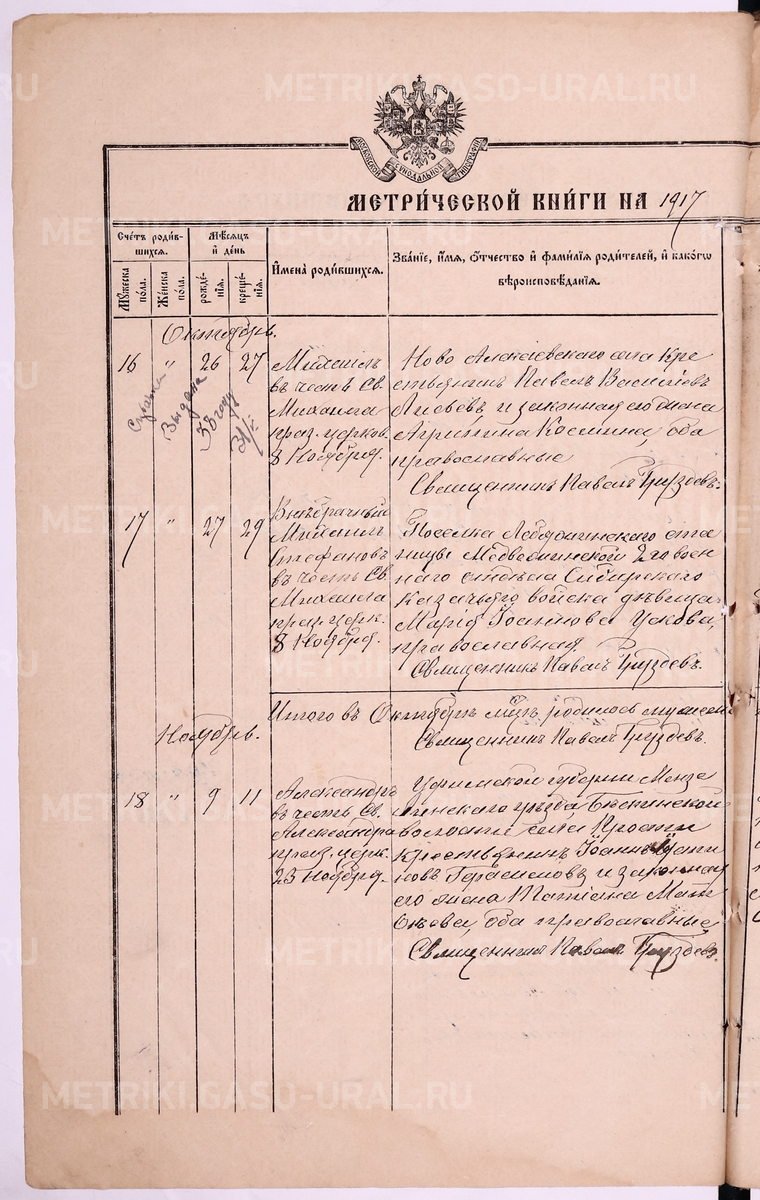 МОСКОВСКОЙ СѴНОДАЛЬНОЙ ТИПОГРАФІИ
МЕТРИ́ЧЕСКОЙ КНИ́ГИ НА 1917
Сче́тъ роди́вшихся.
Мѣ́сяцъ и҆ де́нь
Мꙋ́жеска по́ла.
Же́нска по́ла.
рожде́нїѧ.
креще́нїѧ.
И҆мена̀ роди́вшихся.
Зва́нїе, и҆́мѧ, ѻ҆́тчество и҆ фами́лїѧ роди́телей, и҆ како́гѡ вѣроисповѣ́данїѧ.
Октябрь.
16 " 26 27
Михаилъ
въ честь Св.
Михаила
праз. церков.
8 Ноября.
Справка Выдана 38 году
Ново Алексѣевскаго села Кре
стьянинъ Павелъ Василіевъ
и законная его жена
Агрипина Космина, оба
православные
Священникъ Павелъ Груздевъ.
17 " 27 29
Внѣбрачный
Михаилъ
Стефановъ
въ честь Св.
Михаила
праз. церк.
8 Ноября.
Поселка Лебяжинскаго ста
ницы Медвежинской 2го воен
наго отдѣла Сибирскаго
казачьяго войска дѣвица
Марія Іоаннова Ускова,
православная.
Священникъ Павелъ Груздевъ.
Итого въ Октябрѣ м-цѣ родилось мужеск
Священникъ Павелъ Груздевъ.
Ноябрь.
18 " 9 11
Александръ
въ честь Св.
Александра
праз. церк.
23 Ноября.
Уфимской губерніи Мензе
линскаго уѣзда,
волости села
крестьянинъ Іоаннъ
Герасимовъ и законная
его жена Татіана Мат
ѳѣева, оба православные
Священникъ Павелъ Груздевъ.
METRIKI.GASO-URAL.RU